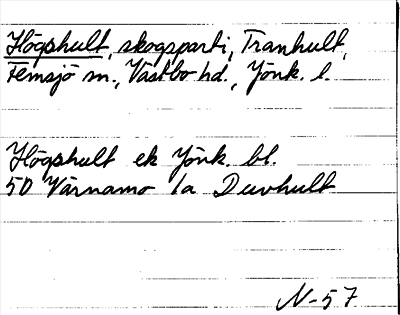 Högshult, skogsparti, Tranhult,
Femsjö sn., Västbo hd., Jönk. l.
Högshult ek Jönk. bl.
50 Värnamo 1a Duvhult
N-57